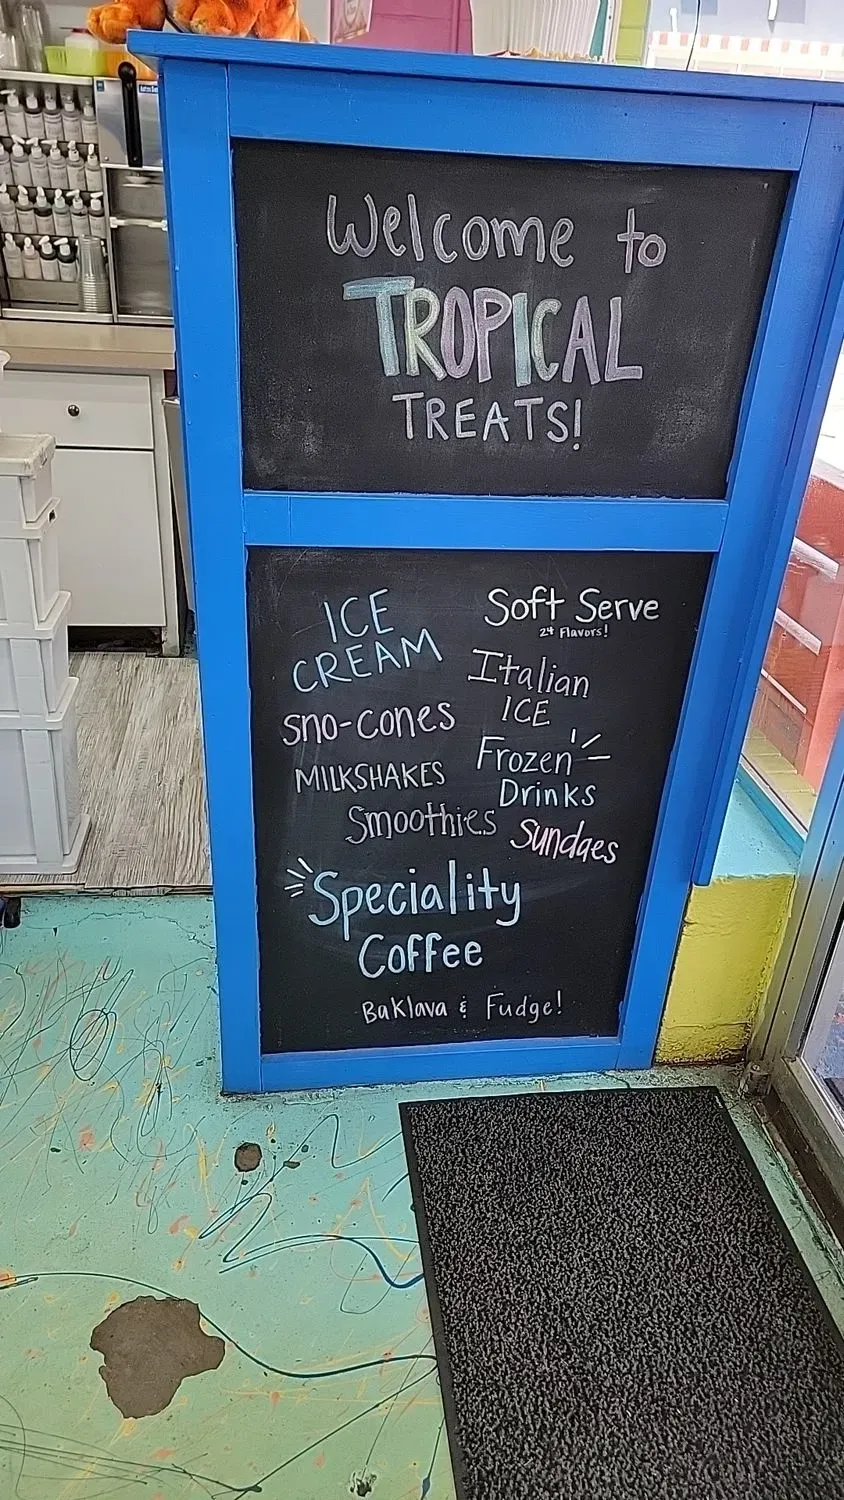 Welcome to
TROPICAL
TREATS!
ICE
CREAM
Soft Serve
24 Flavors!
Italian
ICE
SNO-CONES
Frozen
Drinks
MILKSHAKES
Smoothies
Sundaes
Speciality
Coffee
Baklava & Fudge!